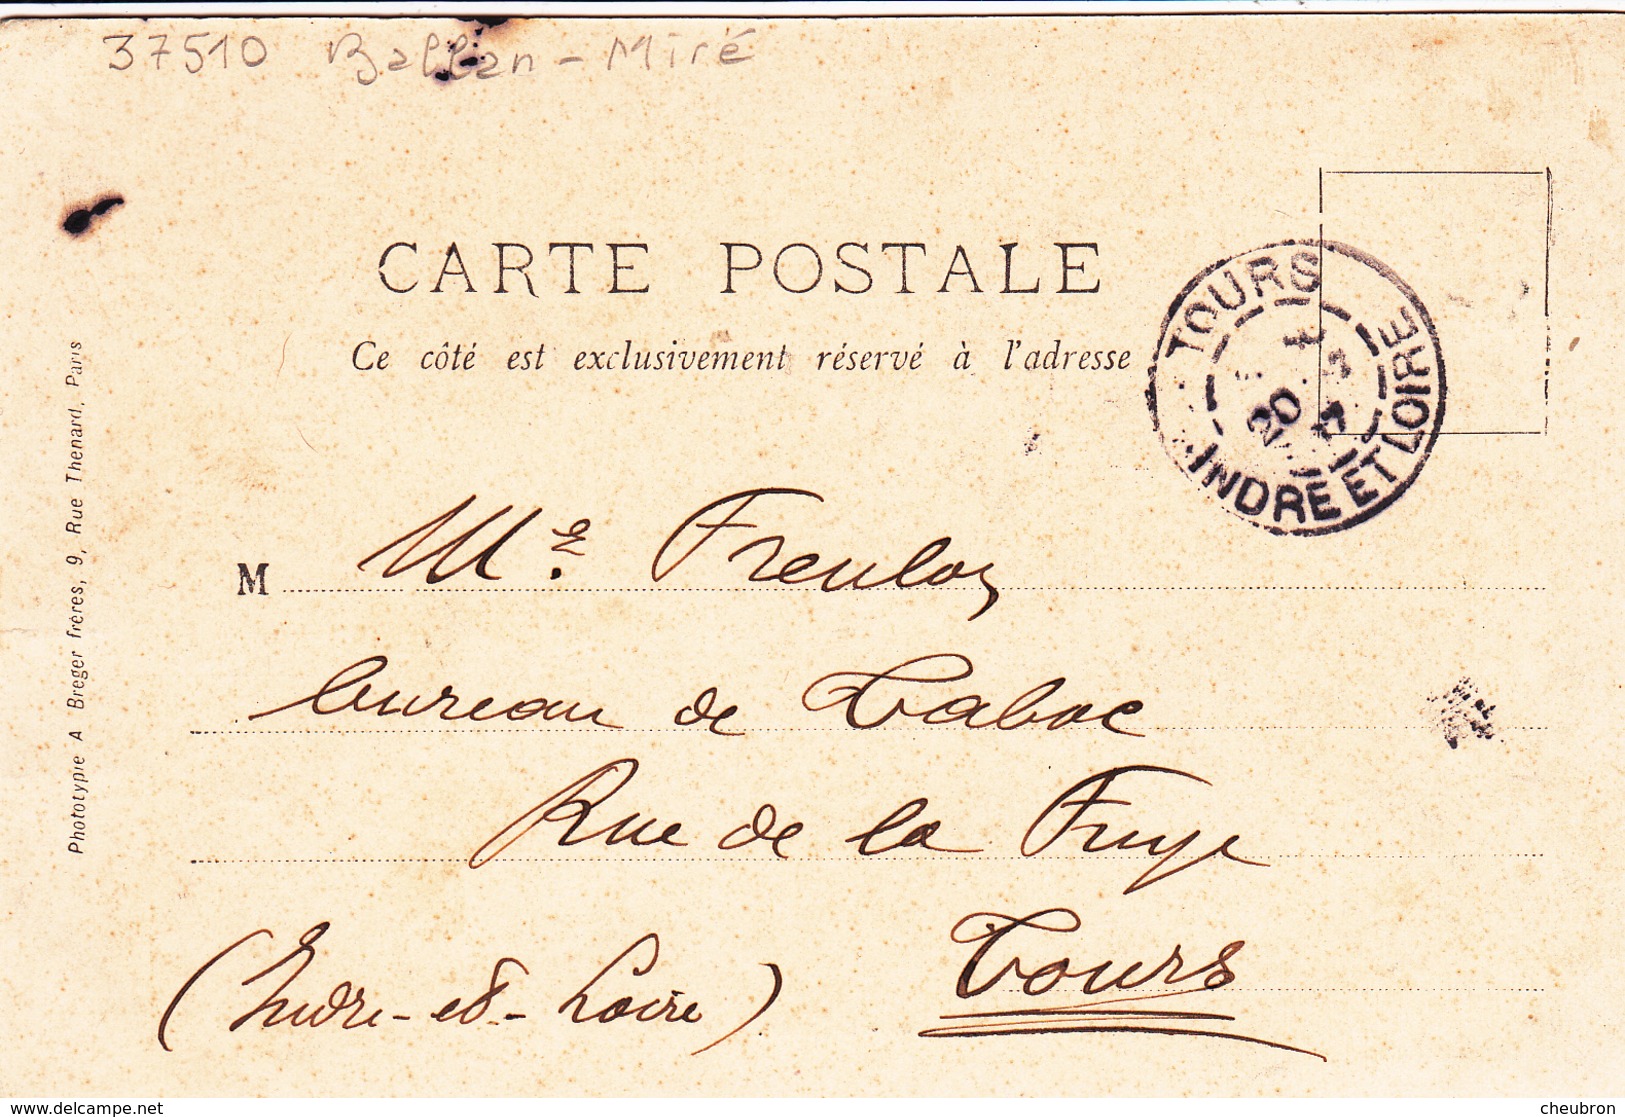 37510 Ballan-Miré
CARTE POSTALE
Ce côté est exclusivement réservé à l'adresse
TOURS
20
INDRE ET LOIRE
M
bureau de Tabac
Rue de la Fuye
Tours
(Indre-et-Loire)
Phototypie A Breger frères, 9, Rue Thenard, Paris
www.delcampe.net
cheubron